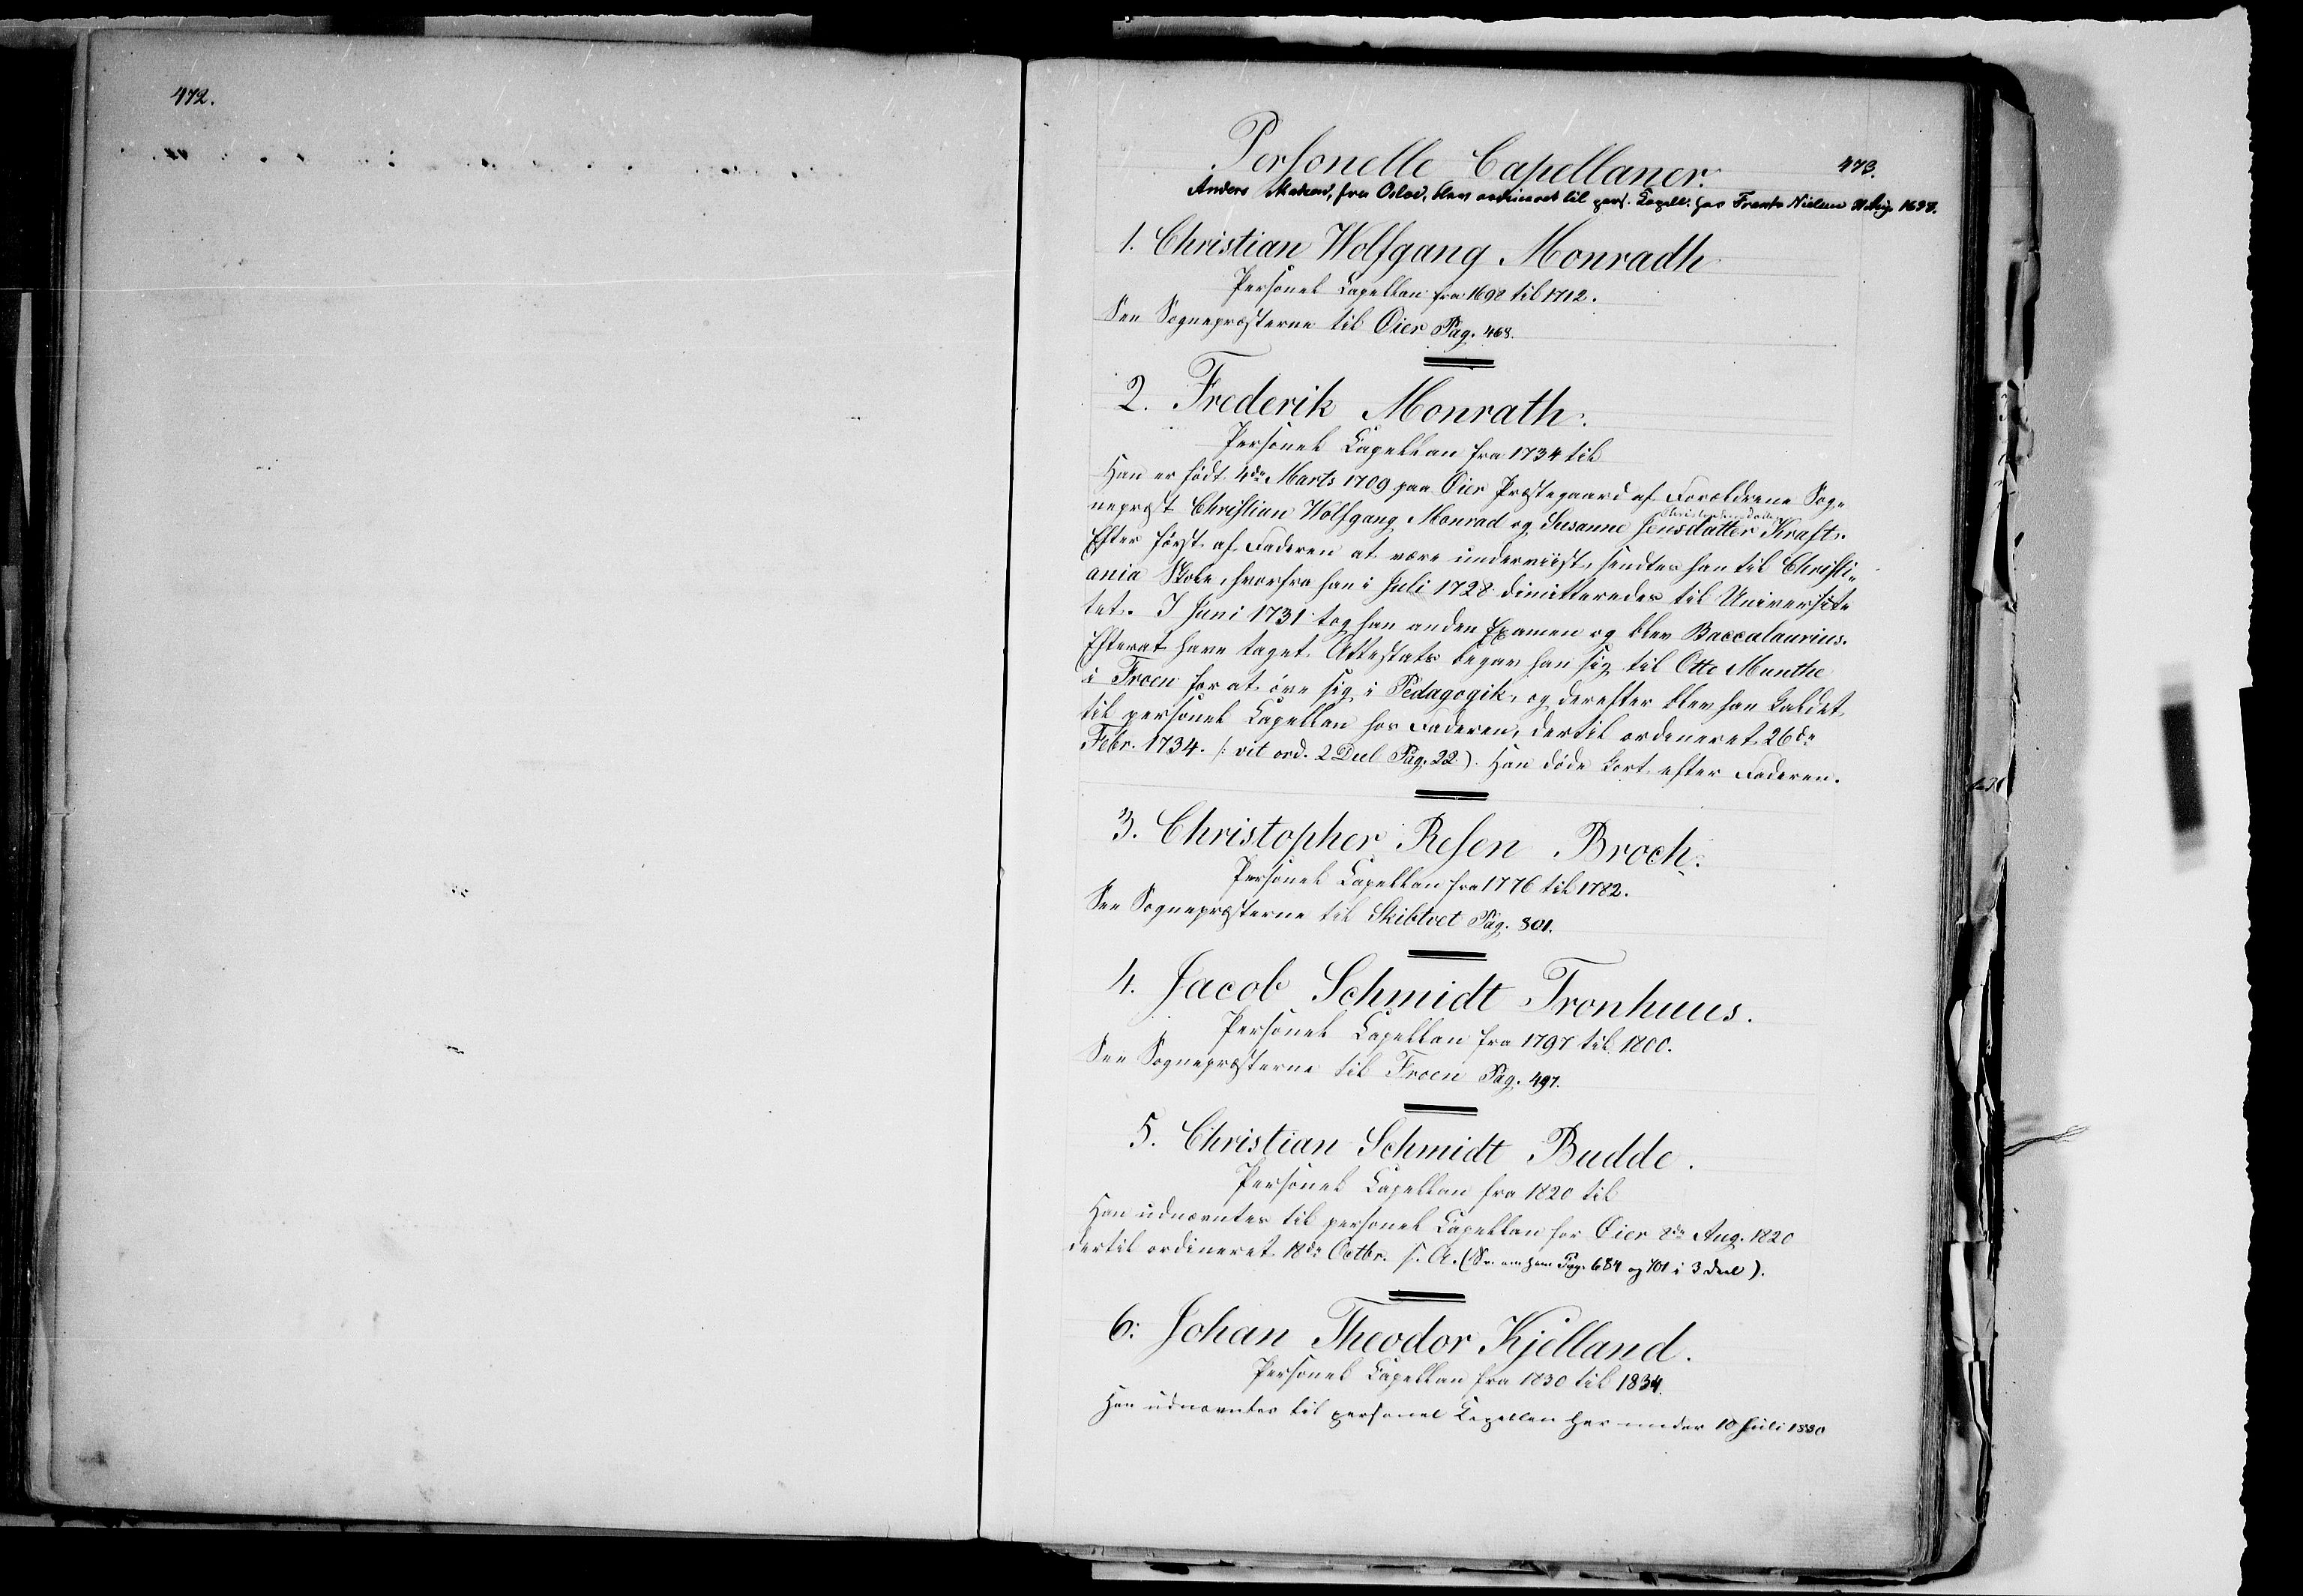 472.
Personelle Capellaner.
473.
Anders, fra Oslo, blev ordineret til pers. Capell. hos Frants Nielsen Aug. 1697.
1. Christian Wolfgang Monradh
Personel Capellan fra 1698 til 1712.
See Sognepræsterne til Öier Pag. 468.
2. Frederik Monrath.
Personel Capellan fra 1734 til
Han er födt 4de Marts 1709 paa Öier Præstegaard af Forældrene Sog-
nepræst Christian Wolfgang Monrad og Susanne Jensdatter Kraft.
Efter först af Faderen at være underviist, sendtes han til Christi-
ania Skole, hvorfra han i Juli 1728 dimitteredes til Universite
tet. I Juni 1731 tog han anden Examen og blev Baccalaurius.
Efterat have taget Attestats begav han sig til Otto Munthe
i Froen for at öve sig i Pedagogik, og derefter blev han kaldet
til personel Capellan hos Faderen, dertil ordineret 26de
Febr. 1734. (: vit ord. 2 Deel Pag. 22). Han döde kort efter Faderen.
3. Christopher Resen Broch.
Personel Capellan fra 1776 til 1782.
See Sognepræsterne til Skibtvet Pag. 301.
4. Jacob Schmidt Tronhuus.
Personel Capellan fra 1797 til 1800.
See Sognepræsterne til Froen Pag. 497.
5. Christian Schmidt Budde.
Personel Capellan fra 1820 til
Han udnævntes til personel Capellan for Öier 8de Aug. 1820
dertil ordineret 18de Octbr. s. A. (Se om ham Pag. 684 og 701 i 3 Deel).
6. Johan Theodor Kjelland.
Personel Capellan fra 1830 til 1834.
Han udnævntes til personel Capellan her under 10 Juli 1830